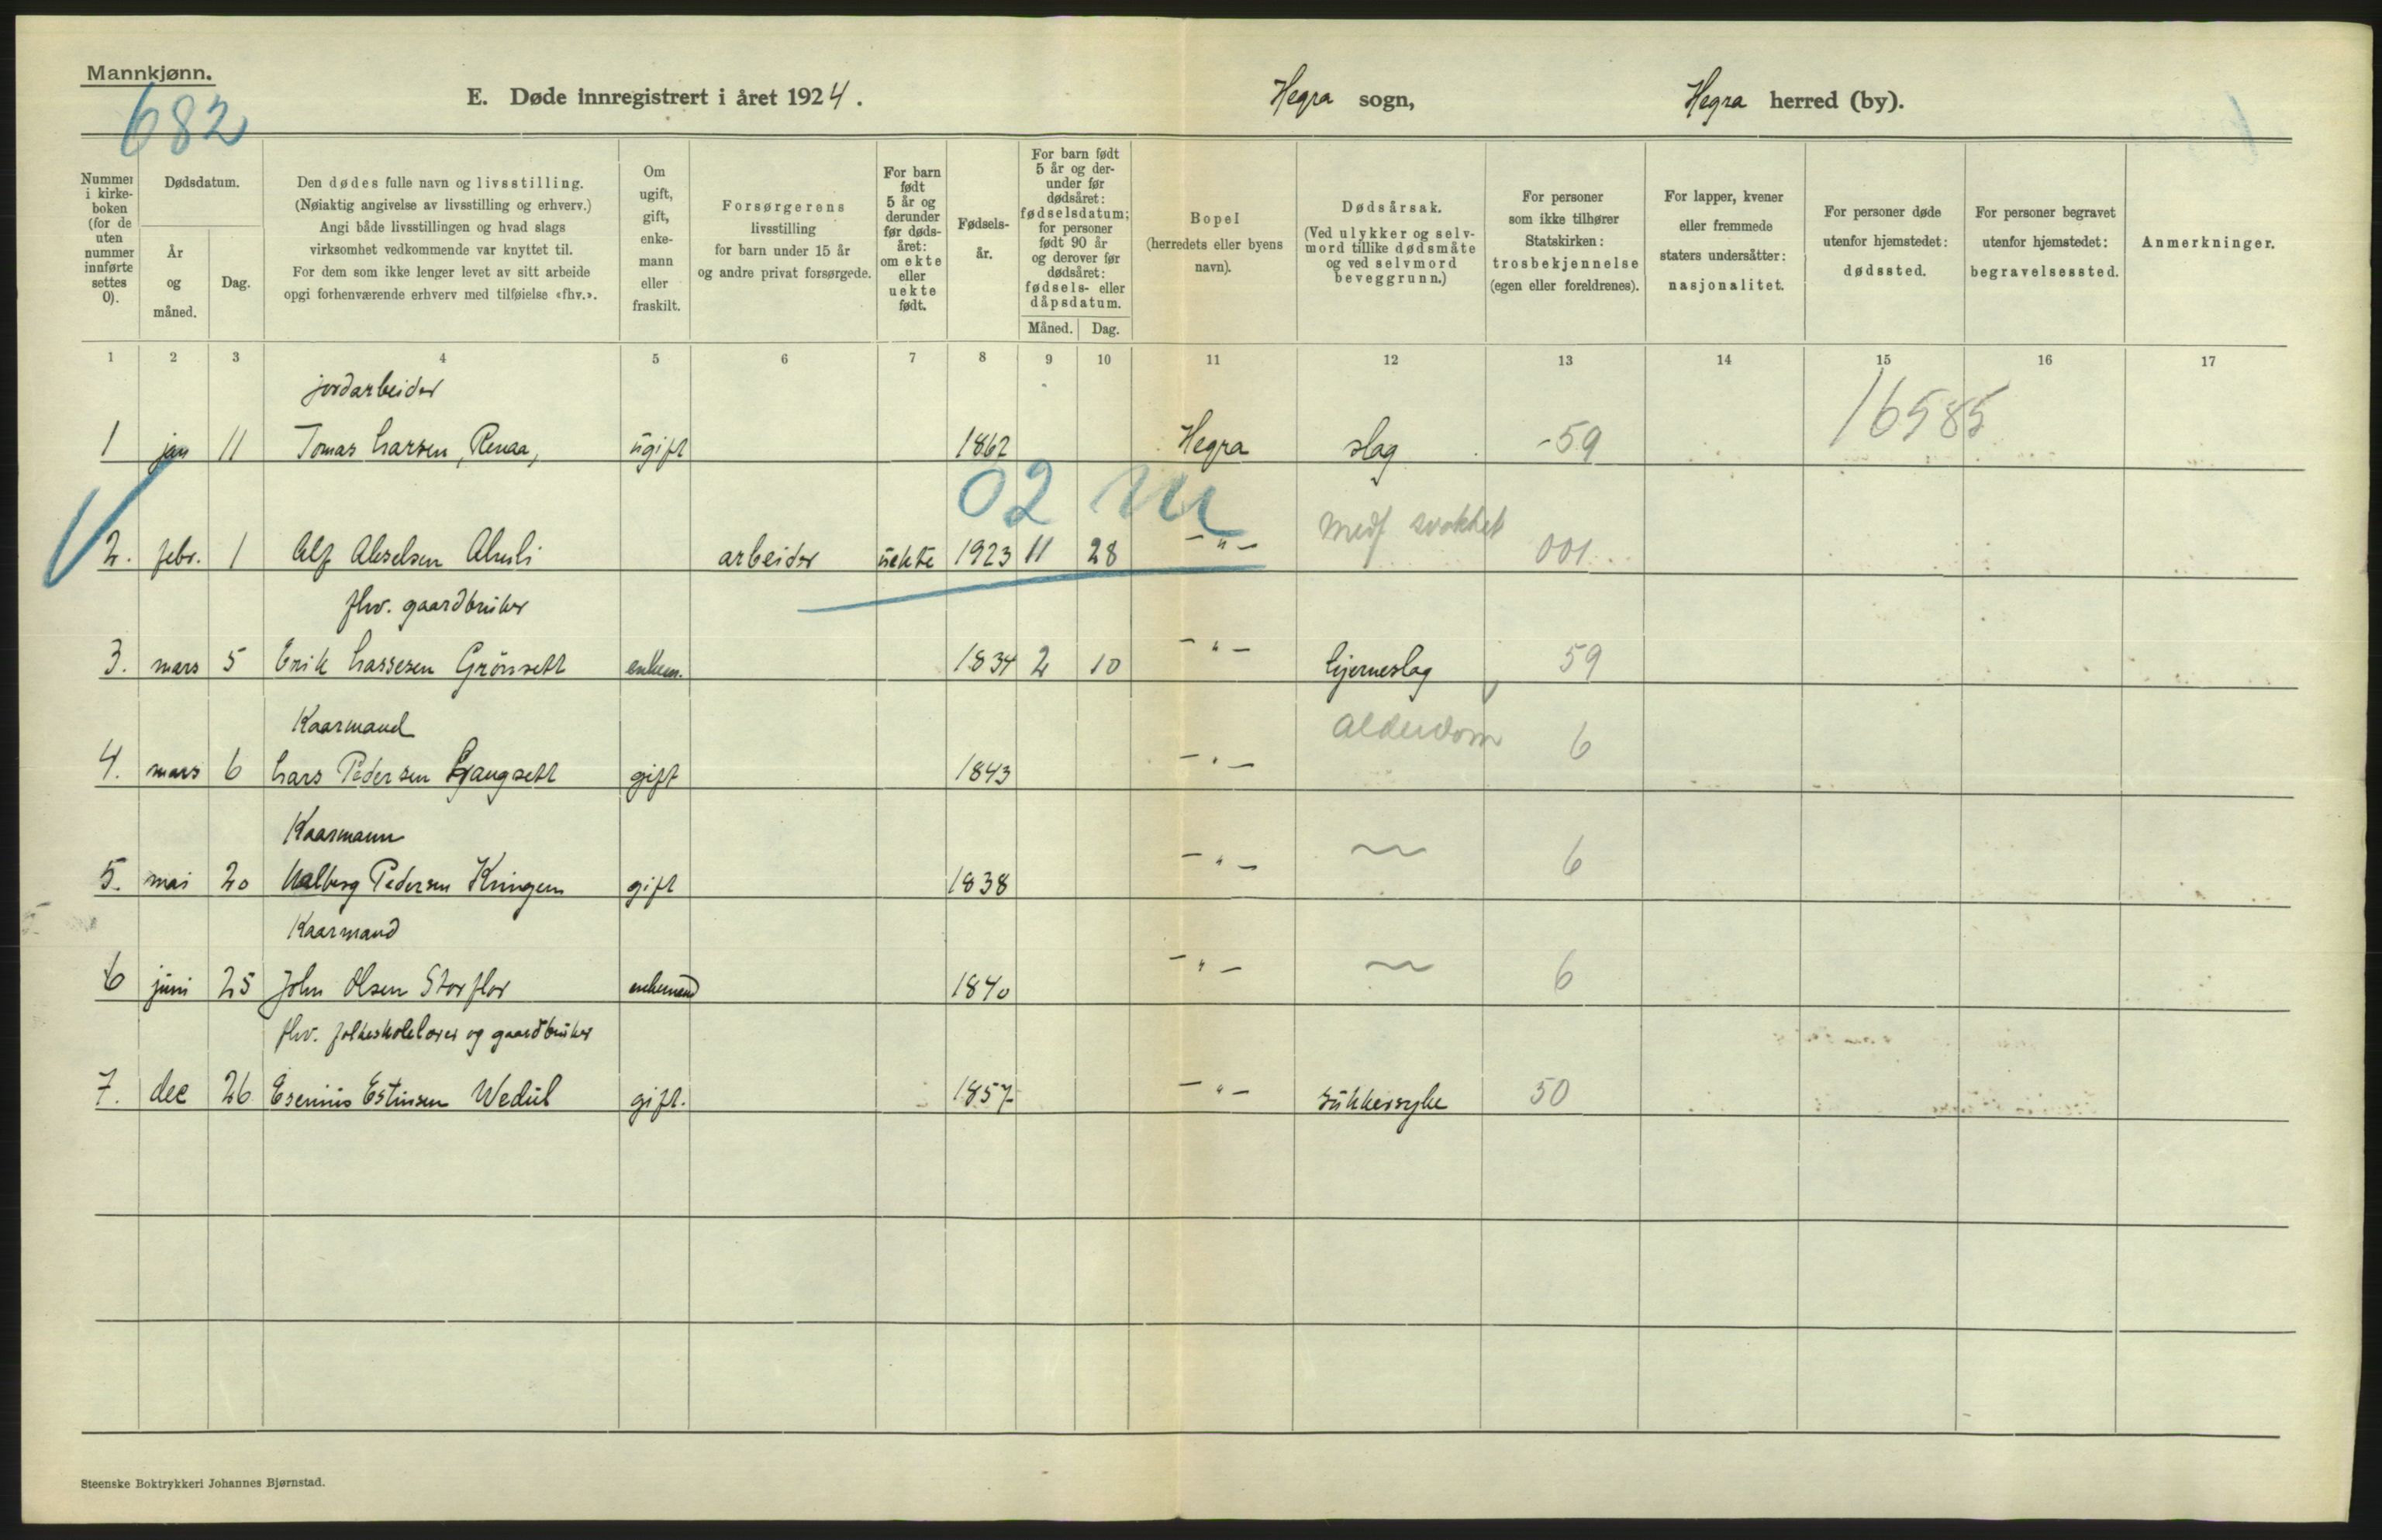 Mannkjønn.
682
E. Døde innregistrert i året 1924.
Hegra sogn,
Hegra herred (by).
Nummer i kirke- boken (for de uten nummer innførte settes 0).
Dødsdatum.
År og måned.
Dag.
Den dødes fulle navn og livsstilling.
(Nøiaktig angivelse av livsstilling og erhverv.)
Angi både livsstillingen og hvad slags
virksomhet vedkommende var knyttet til.
For dem som ikke lenger levet av sitt arbeide
opgi forhenværende erhverv med tilføielse «fhv.».
Om ugift, gift, enke- mann eller fraskilt.
Forsørgerens
livsstilling
for barn under 15 år
og andre privat forsørgede.
For barn født 5 år og derunder før døds- året: om ekte eller uekte født.
Fødsels- år.
For barn født 5 år og der- under før dødsåret: fødselsdatum; for personer født 90 år og derover før dødsåret: fødsels- eller dåpsdatum.
Måned. Dag.
Bopel
(herredets eller byens
navn).
Dødsårsak.
(Ved ulykker og selv-
mord tillike dødsmåte
og ved selvmord
beveggrunn.)
For personer
som ikke tilhører
Statskirken:
trosbekjennelse
(egen eller foreldrenes).
For lapper, kvener
eller fremmede
staters undersåtter:
nasjonalitet.
For personer døde
utenfor hjemstedet:
dødssted.
For personer begravet
utenfor hjemstedet:
begravelsessted.
Anmerkninger.
1 2 3 4 5 6 7 8 9 10 11 12 13 14 15 16 17
jordarbeider
16585
1 jan 11 Tomas Larsen, Renaa, ugift 1862 Hegra slag -59
02 M
2. febr. 1 Alf Akselsen arbeider uekte 1923 11 28 -"- Medf svakhet 001
fhv. gaardbruker
3. mars 5 Erik Lassesen Grönsett enkem. 1834 2 10 -"- hjerneslag 59
Kaarmand
4. mars 6 Lars Pedersen gift 1843 -"- Alderdom 6
Kaarmann
5. mai 20 Pedersen Kringen gift 1838 -"- 6
Kaarmand
6 juni 25 John Olsen Storflor enkemand 1840 -"- 6
fhv. folkeskolelærer og gaardbruker
7. dec 26 Esenius Estinsen Wedul gift. 1857 -"- Sukkersyke 50
Steenske Boktrykkeri Johannes Bjørnstad.